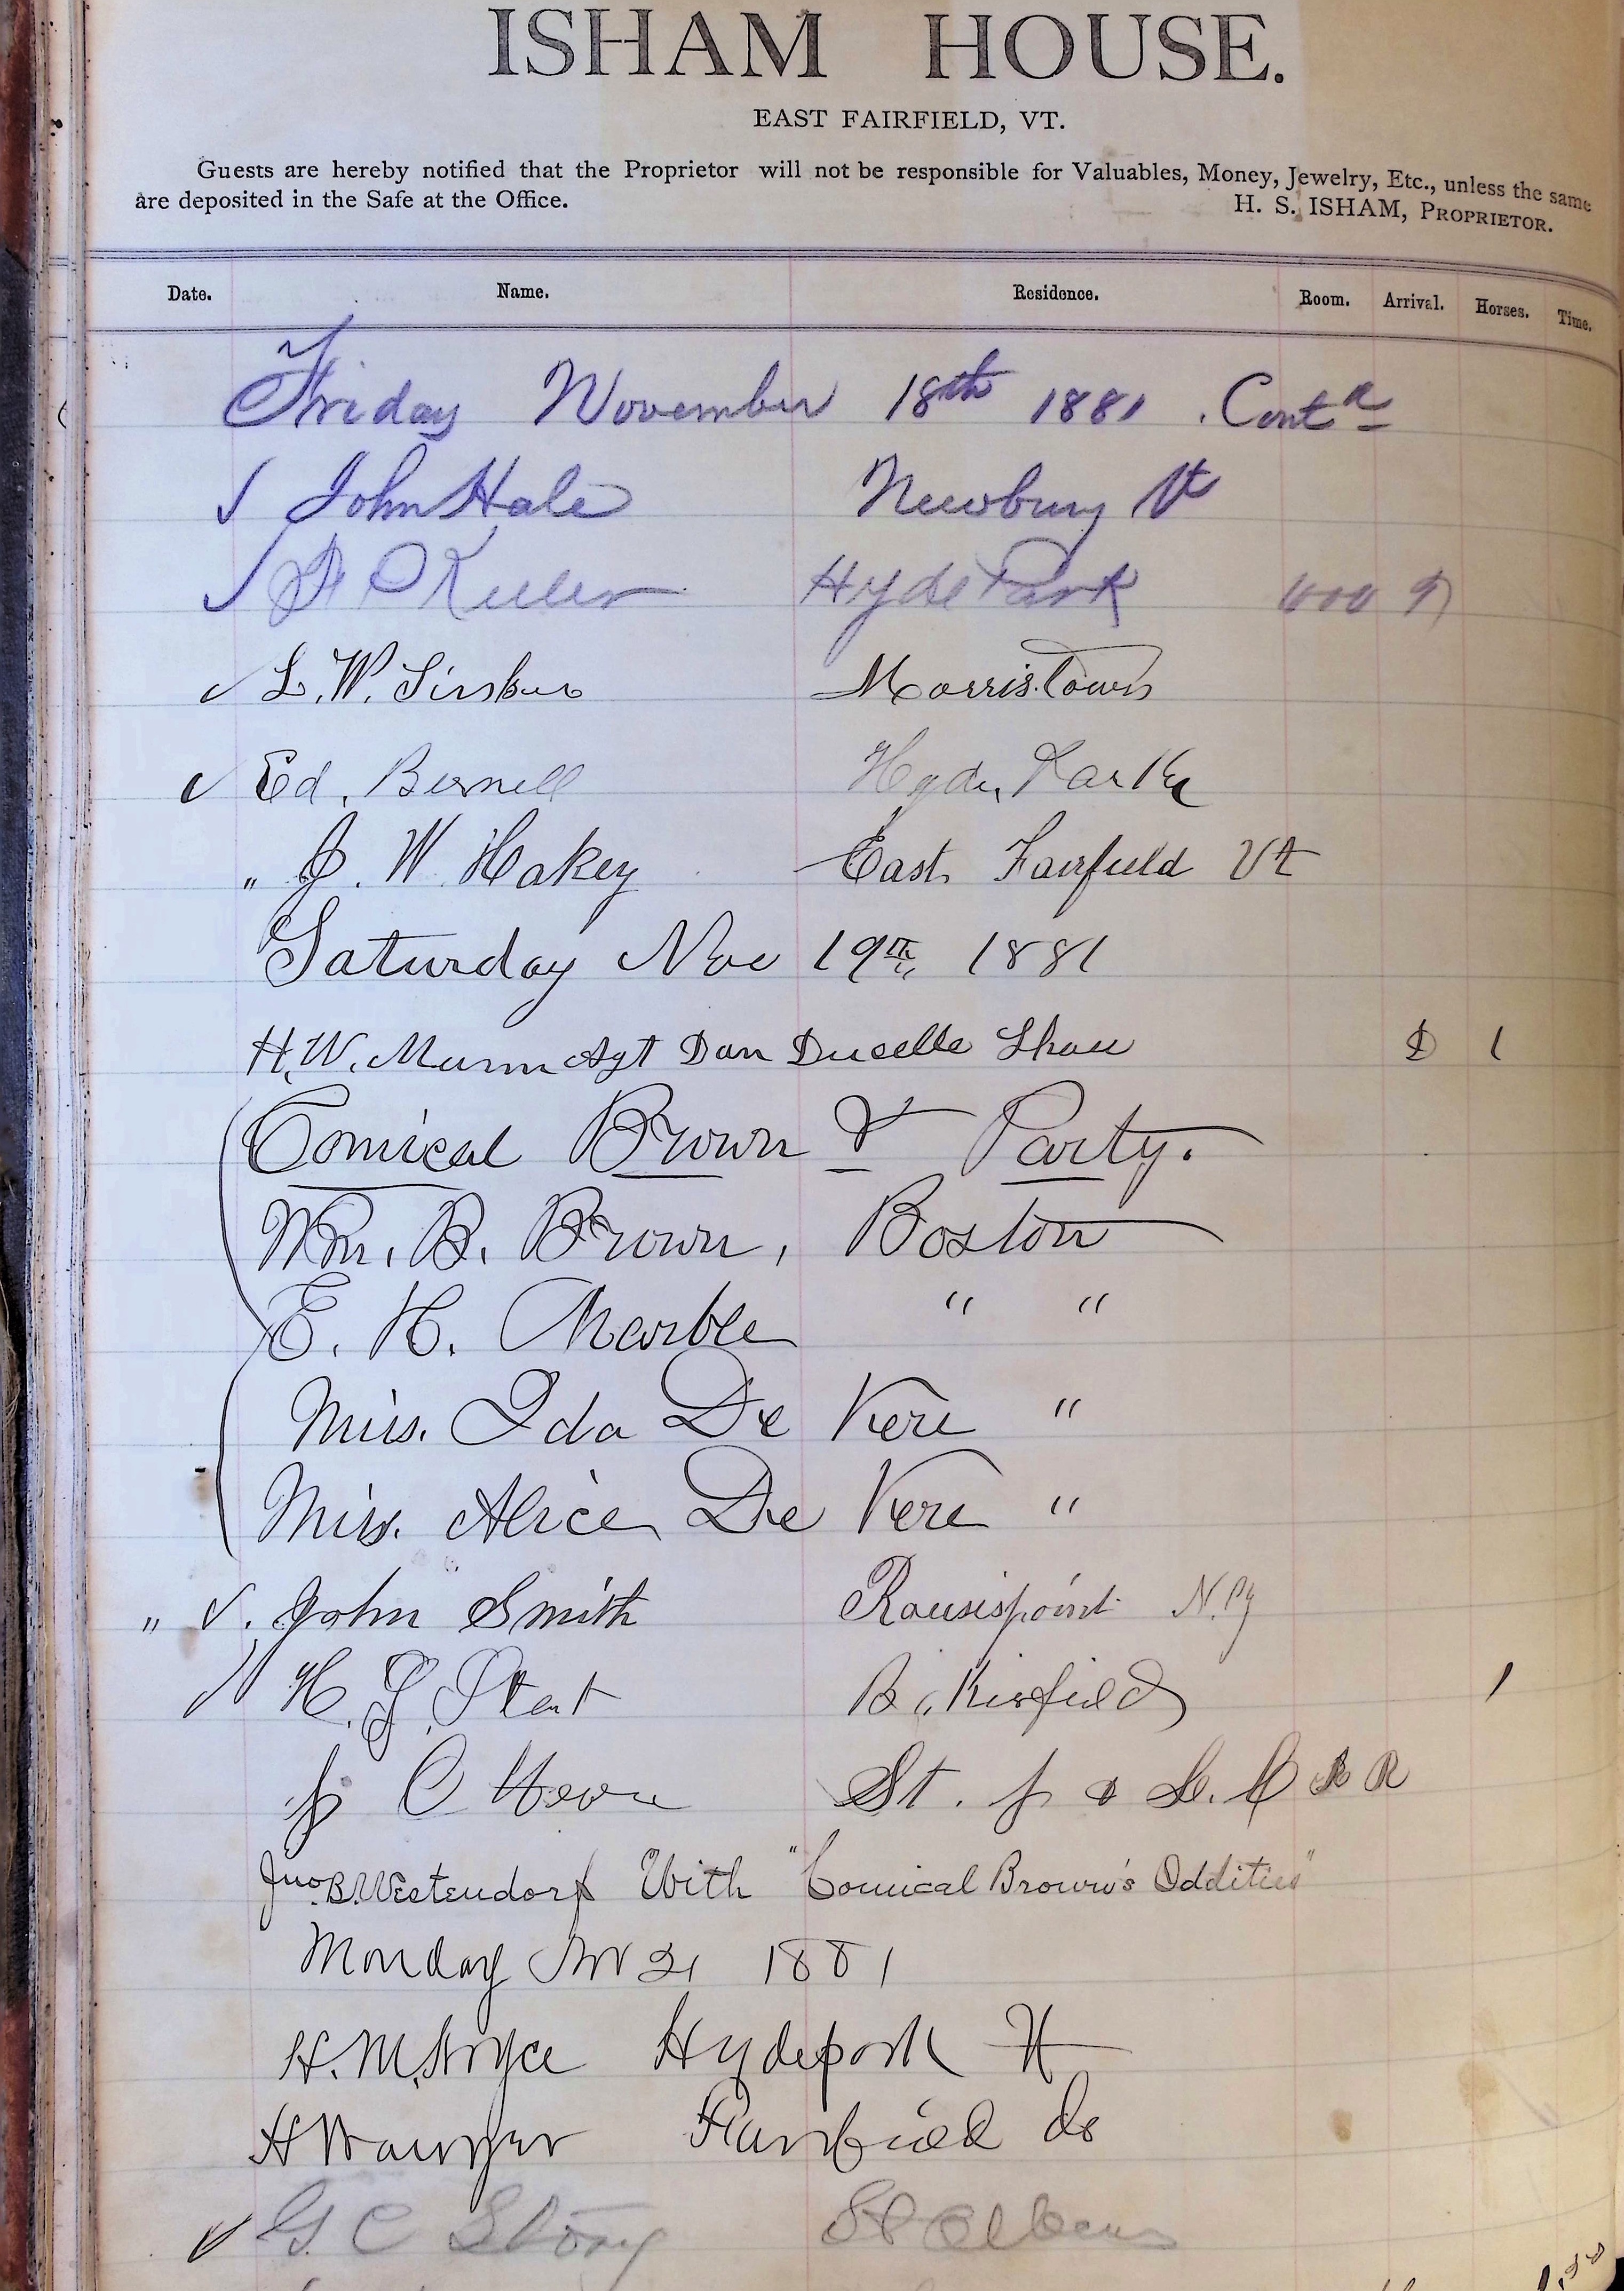 ISHAM HOUSE.
EAST FAIRFIELD, VT.
Guests are hereby notified that the Proprietor will not be responsible for Valuables, Money, Jewelry, Etc., unless the same
are deposited in the Safe at the Office.
H. S. ISHAM, PROPRIETOR.
Date. Name. Residence. Room. Arrival. Horses. Time.
Friday November 18th 1881. Contd
John Hale Newbury Vt
Hyde Park
L. W. Morristown
Ed. Hyde Park
" J. W. Hakey East Fairfield Vt
Saturday Nov 19th, 1881
H. W. Munn Agt Dan Ducelle Show D 1
Comical Brown & Party.
Wm. B. Brown, Boston
E. H. Marble " "
Miss. Ida De Vere "
Miss. Alice De Vere "
" John Smith Rousispoint N. Y
H. 1
St. J & L. C R R
Jno B. Westendorf With "Comical Brown's Oddities"
Monday Nov 21 1881
H. M. Hydepark Vt
Fairfield do
G. C. Story St Albans